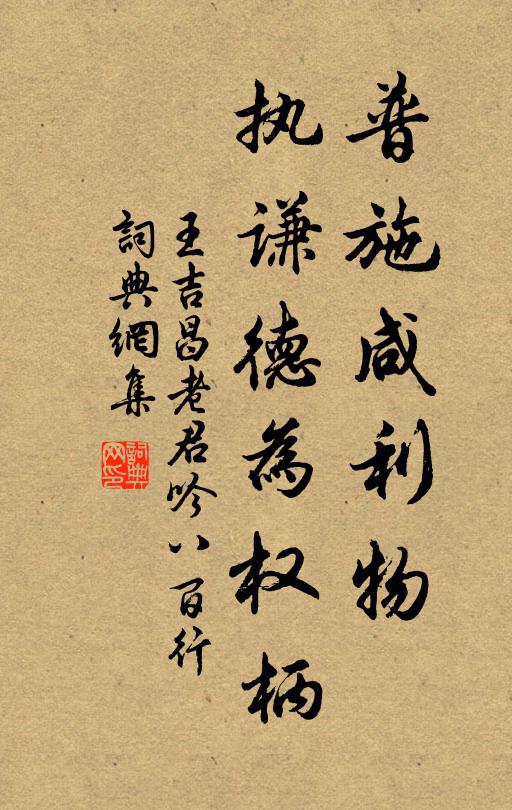 普施咸利物
执谦德為权柄
王吉昌老君吟八百行
詞典網集
詞典网印